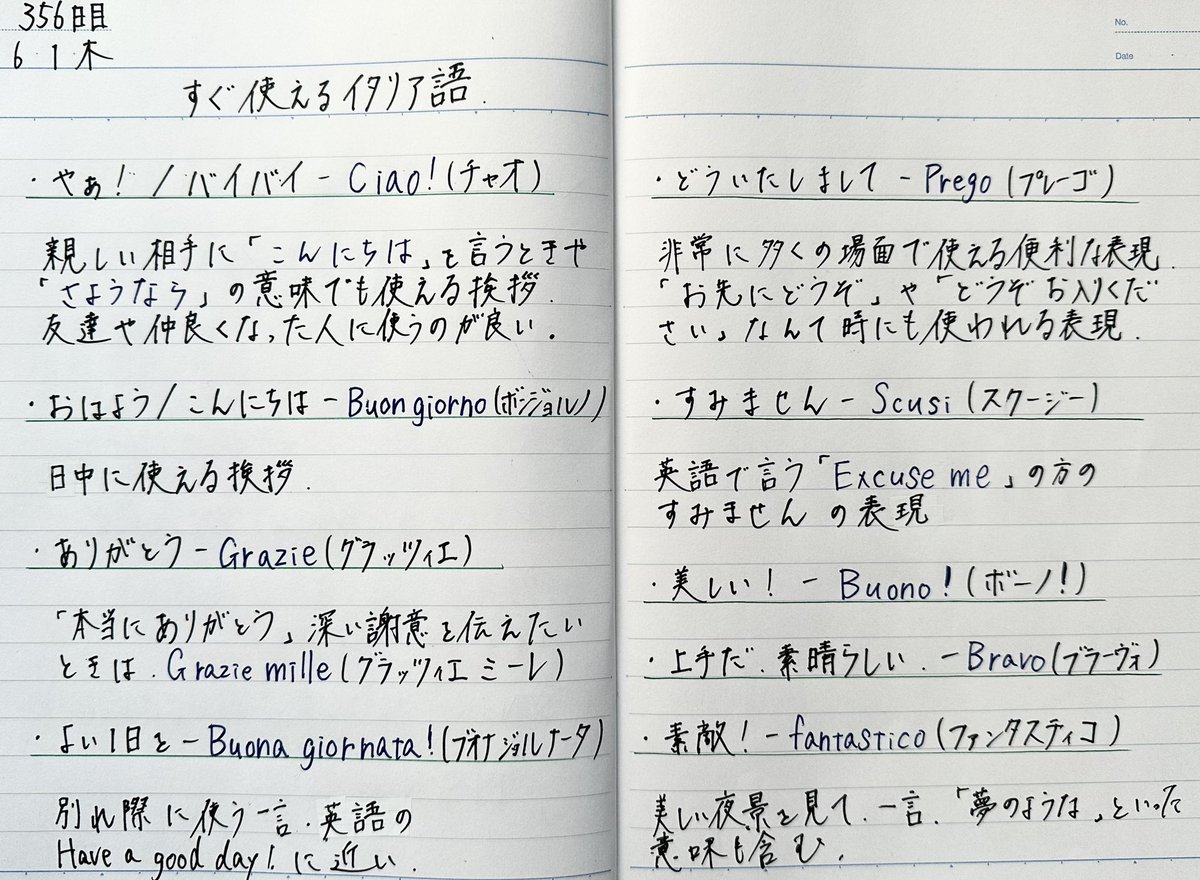 356日目
6 1 木
すぐ使えるイタリア語.
・やぁ! / バイバイ - Ciao! (チャオ)
親しい相手に「こんにちは」を言うときや
「さようなら」の意味でも使える挨拶.
友達や仲良くなった人に使うのが良い.
・おはよう/こんにちは - Buon giorno (ボンジョルノ)
日中に使える挨拶.
・ありがとう - Grazie (グラッツィエ)
「本当にありがとう」深い謝意を伝えたい
ときは. Grazie mille (グラッツィエ ミーレ)
・よい1日を - Buona giornata! (ブオナ ジョルナータ)
別れ際に使う一言. 英語の
Have a good day! に近い.
No.
Date
・どういたしまして - Prego (プレーゴ)
非常に多くの場面で使える便利な表現.
「お先にどうぞ」や「どうぞお入りくだ
さい」なんて時にも使われる表現.
・すみません - Scusi (スクージー)
英語で言う「Excuse me」の方の
すみません の表現
・美しい! - Buono! (ボーノ!)
・上手だ. 素晴らしい. - Bravo (ブラーヴォ)
・素敵! - fantastico (ファンタスティコ)
美しい夜景を見て. 一言.「夢のような」といった
意味も含む.